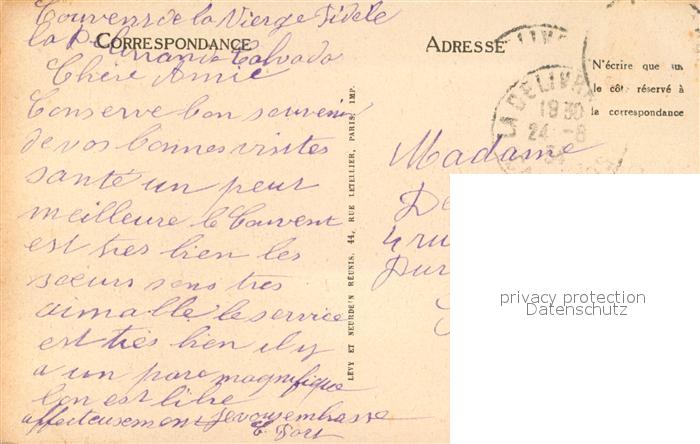 Couvens de la Vierge Fidele
la Delivrande Calvados
CORRESPONDANCE
Chère Amie
Conserve bon souvenir
de vos bonnes visites
santé un peut
meilleure le Couvent
est tres bien les
sœurs sons tres
aimable le service
est tres bien il y
a un parc magnifique
l'on est libre
affecteusement je vous embrasse
E. Fort
LEVY ET NEURDEIN RÉUNIS, 44, RUE LETELLIER, PARIS. IMP.
ADRESSE
N'écrire que
le côté réservé à
la correspondance
LA DELIVR
1930
24 -8
34
Madame
De
4 ru
Pur
privacy protection
Datenschutz